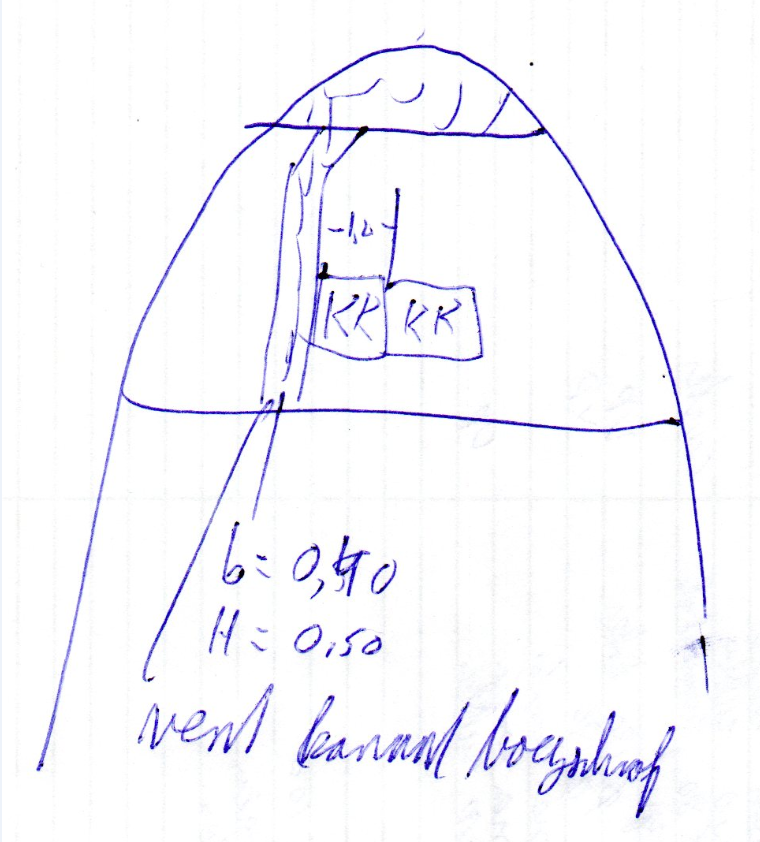 -1,0-
KK KK
b = 0,40
H = 0,50
vent kanaal boegschroef